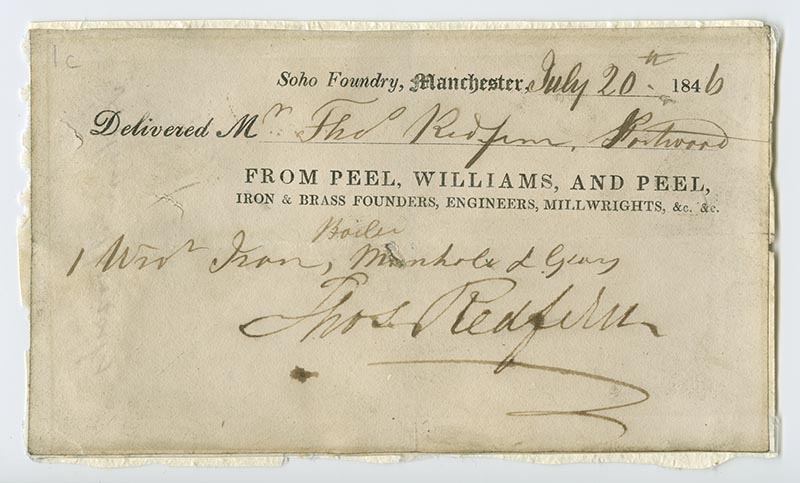 1c
Soho Foundry, Manchester, July 20th 1846
Delivered Mr. Thos Redfern, Portwood
FROM PEEL, WILLIAMS, AND PEEL,
IRON & BRASS FOUNDERS, ENGINEERS, MILLWRIGHTS, &c. &c.
Boiler
1 Wrot Iron, Manhole & Gears
Thos Redfern